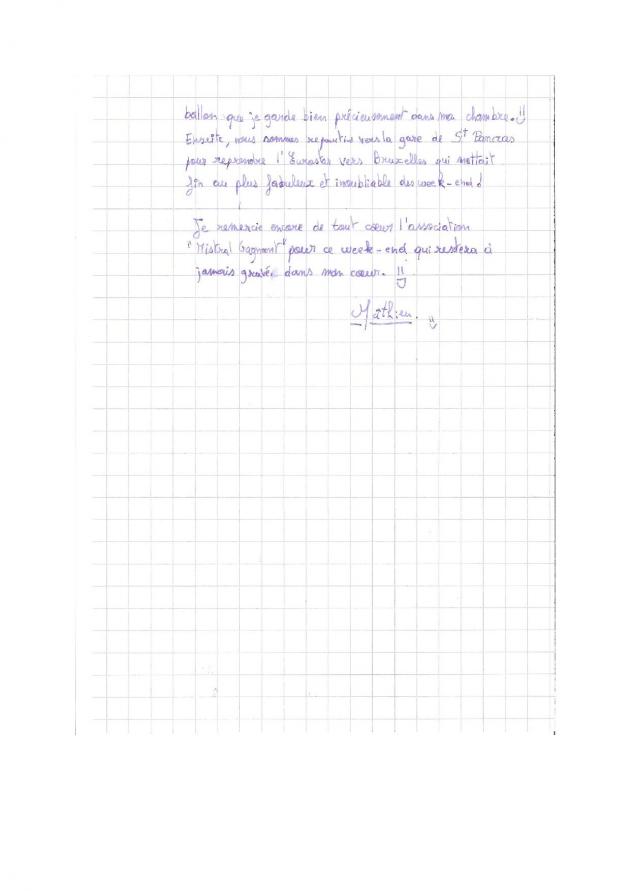 ballon que je garde bien précieusement dans ma chambre.
Ensuite, nous sommes repartis vers la gare de St Pancras
pour reprendre l'Eurostar vers Bruxelles qui mettait
fin au plus fabuleux et inoubliable des week-end!
Je remercie encore de tout cœur l'association
"Mistral Gagnant" pour ce week-end qui restera à
jamais gravée dans mon cœur.
Mathieu.